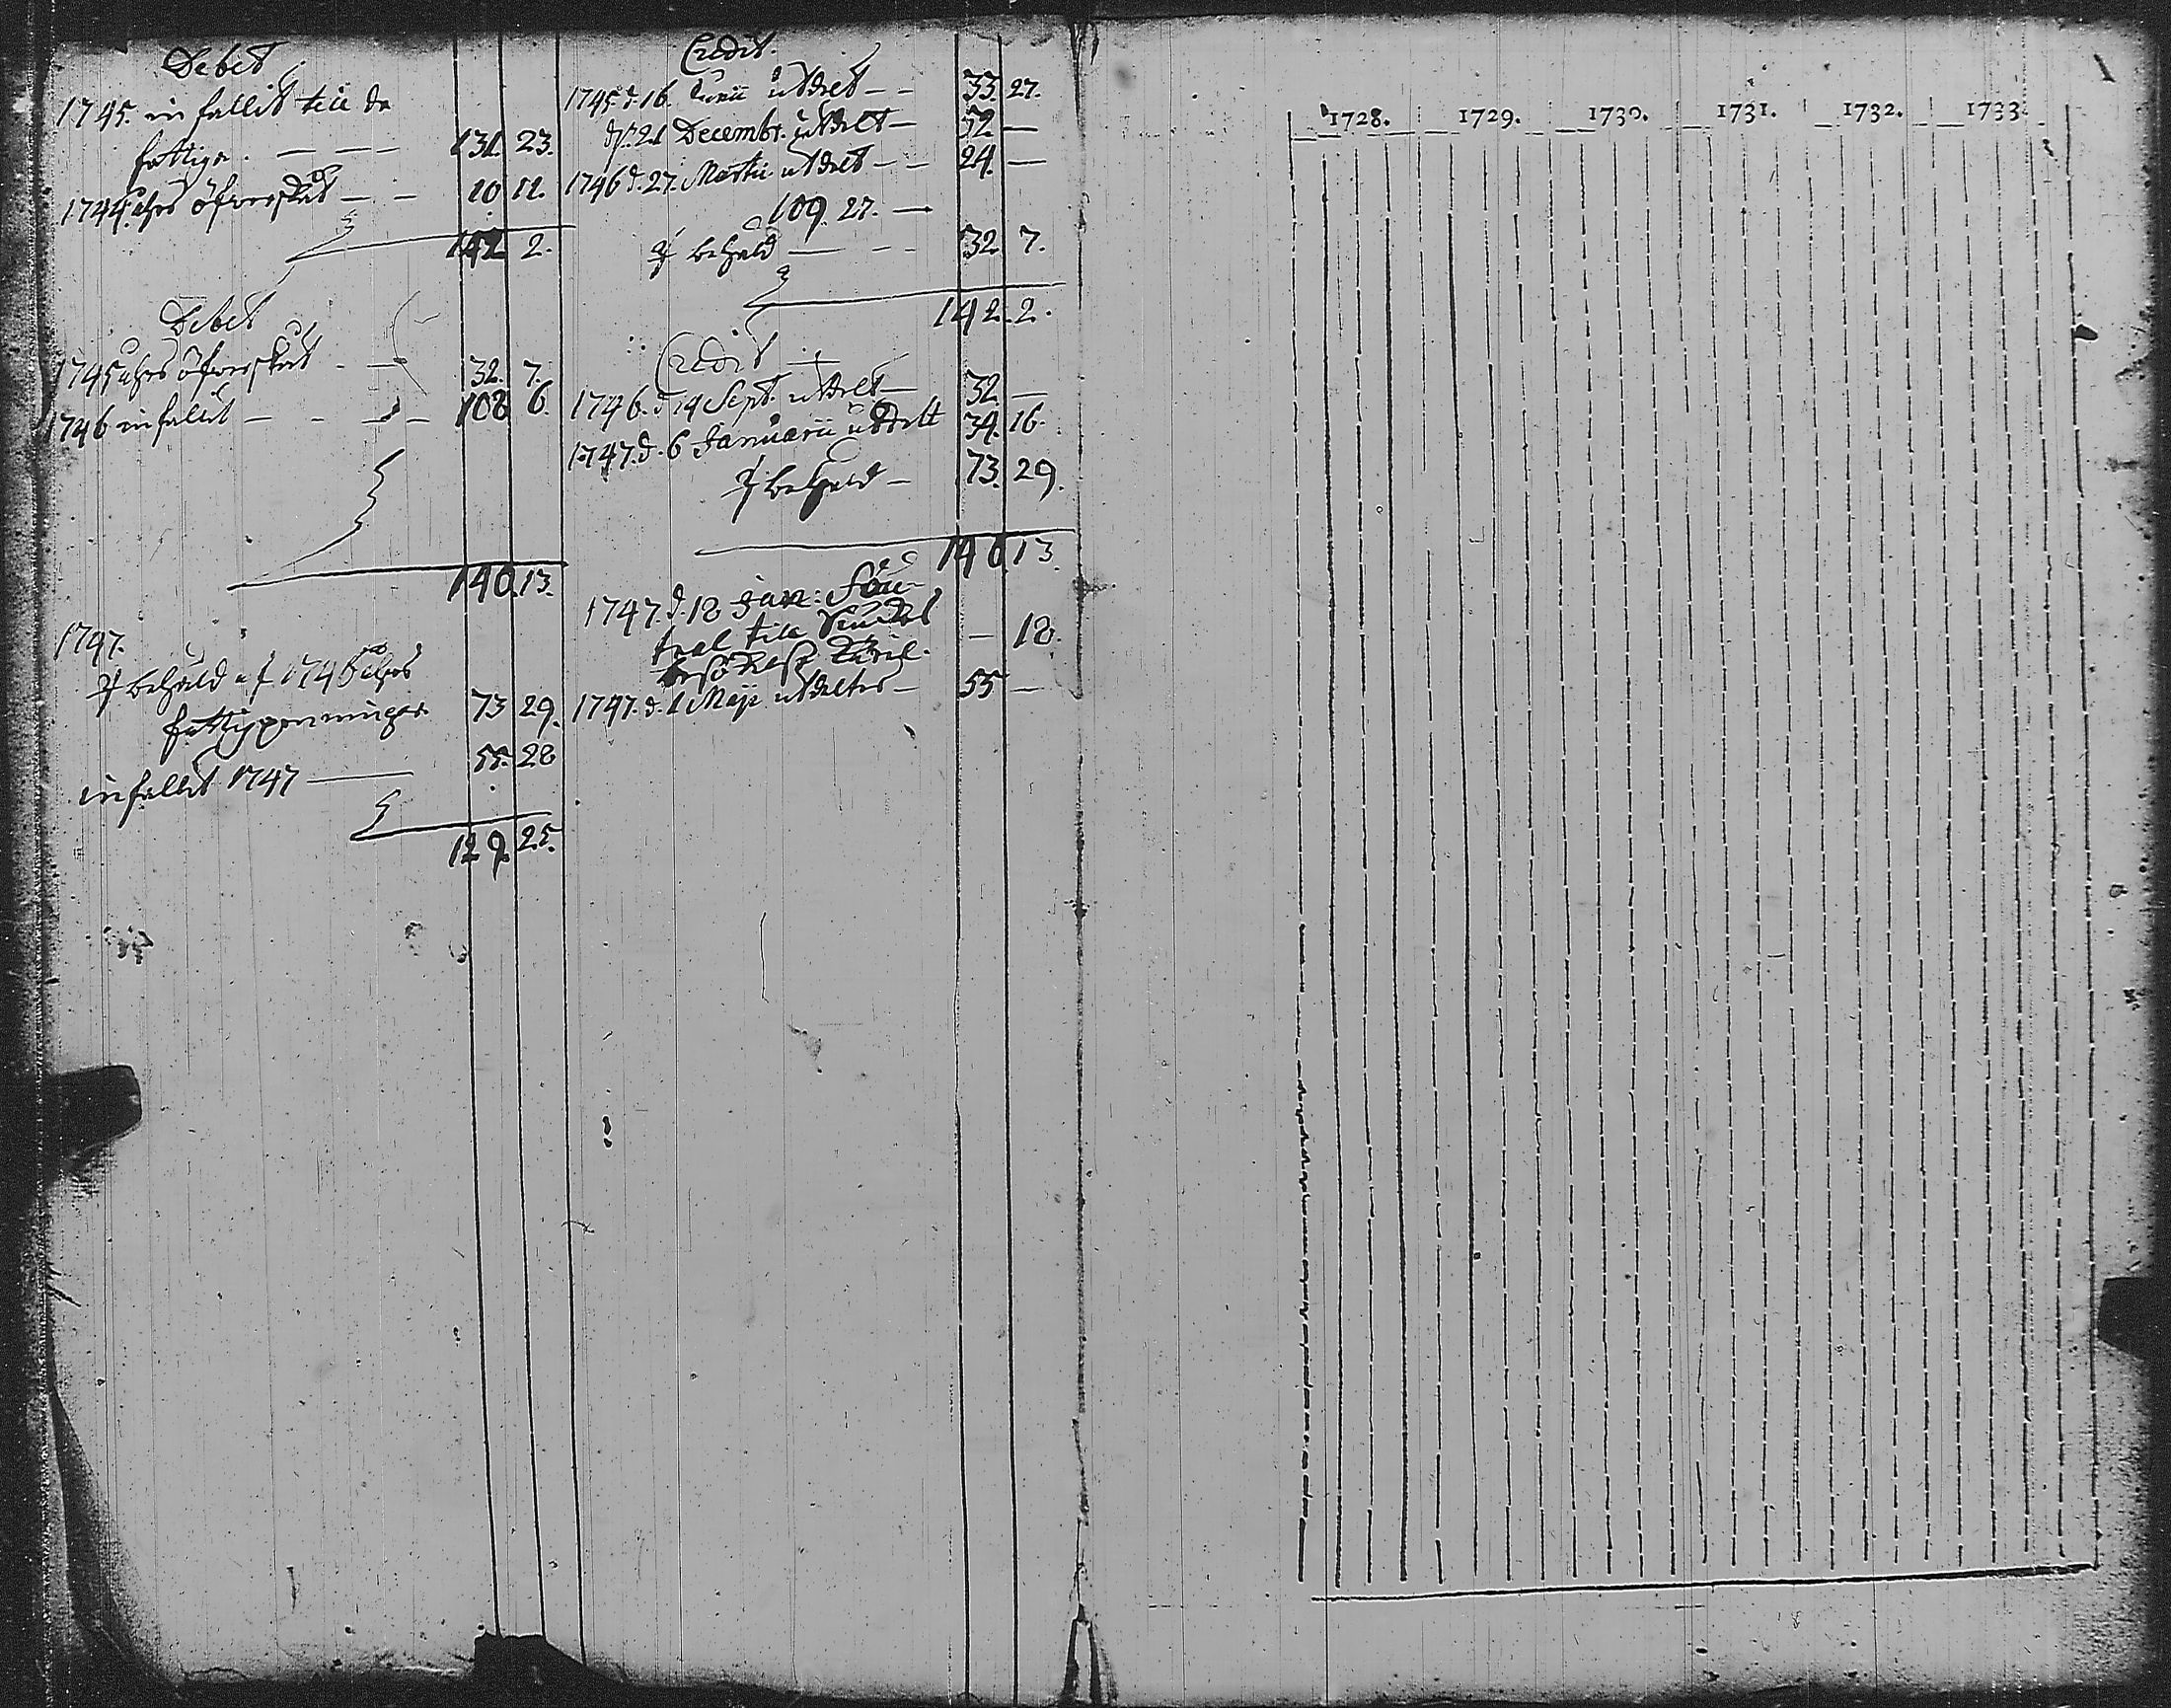 Debet
1745. infallit till de
fattiga. — — — 131. 23.
1744 ahrs öfverskut — — 10 11.
142 2.
Debet
1745 ahrs öfverskut . — 32. 7.
1746 infallit — - - — 108 6.
140. 13.
1747.
behåld af 1746 ahrs
fattigpenningar 73 29.
infallit 1747 — 55. 28
129. 25.
Credit.
1745 d. 16. Junii utdelt — - 33. 27.
d. 21 Decembr. utdelt — 52 —
1746 d. 27. Martii utdelt — - 24. —
109. 27. —
behåld — - - 32 7.
142. 2.
Credit
1746. d 14 Sept. utdelt — 32 —
1747. d. 6 Januarii utdelt 34. 16.
behåld — 73. 29.
140 13.
1747. d. 18 Jan:
till — 18.
1747. d. 1 Maji utdeltes — 55 —
1728. 1729. 1730. 1731. 1732. 1733.